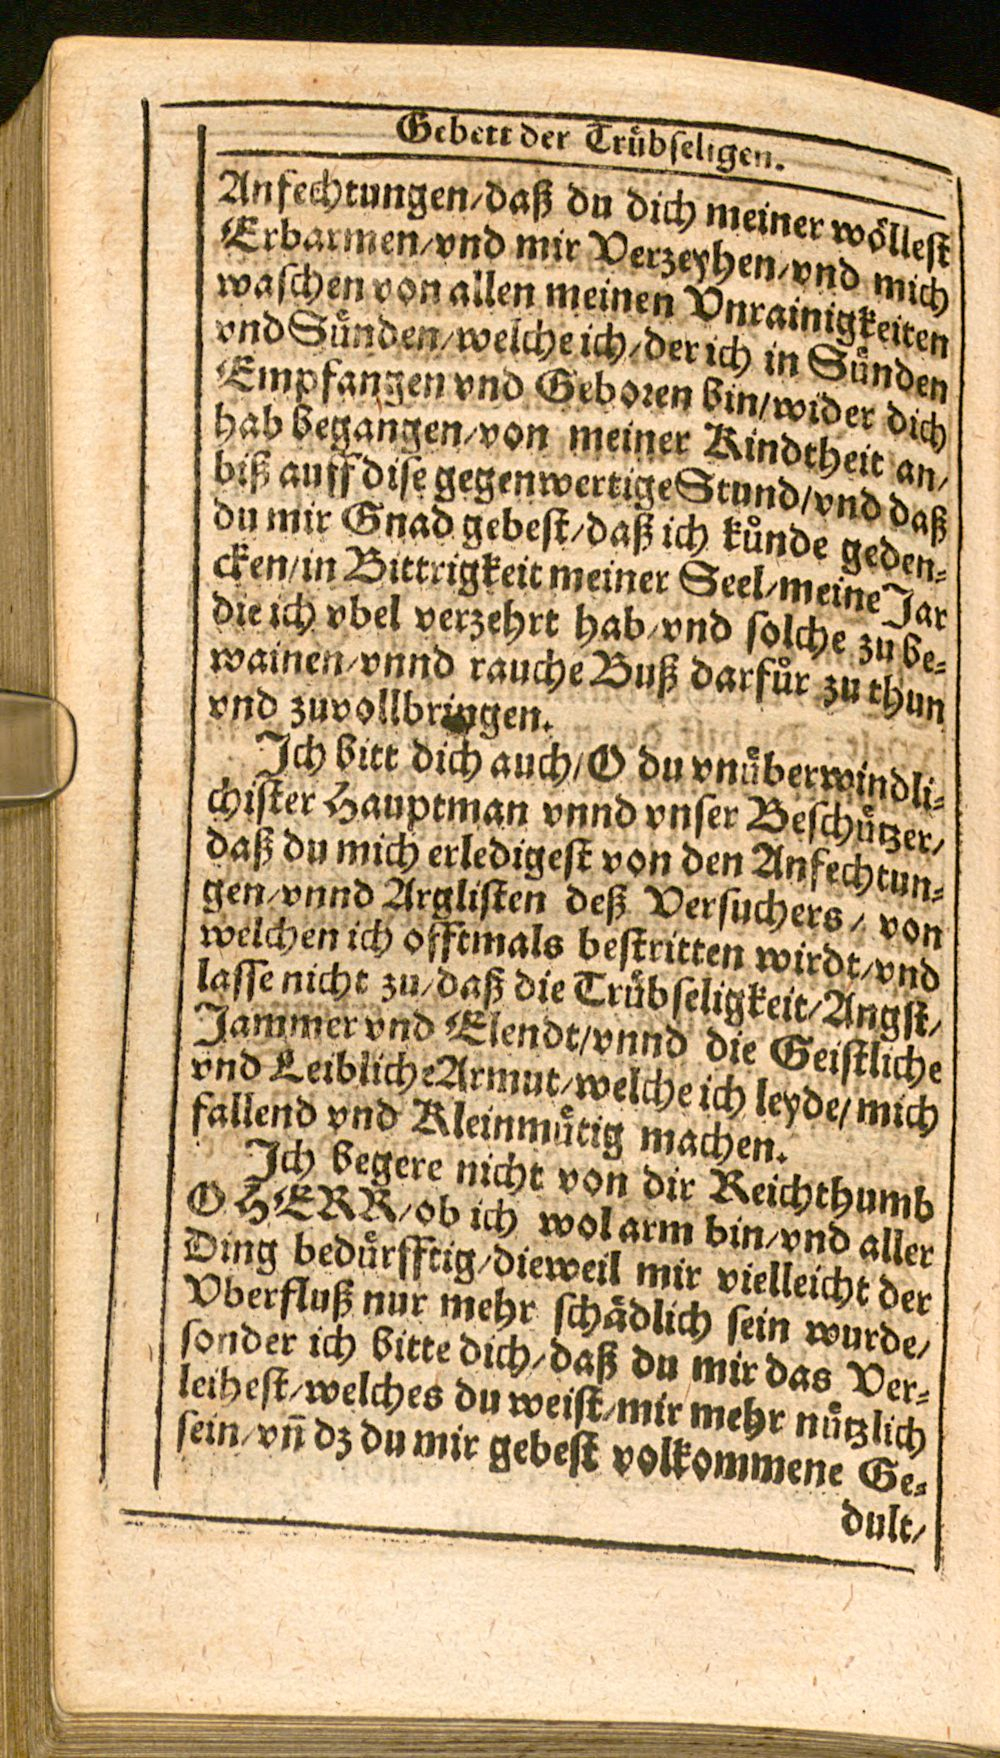 Gebett der Trůbseligen.
Anfechtungen/daß du dich meiner wöllest
Erbarmen/vnd mir Verzeyhen/vnd mich
waschen von allen meinen Vnrainigkeiten
vnd Sůnden/welche ich/der ich in Sůnden
Empfangen vnd Geboren bin/wider dich
hab begangen/von meiner Kindtheit an/
biß auff dise gegenwertige Stund/vnd daß
du mir Gnad gebest/daß ich kůnde geden-
cken/in Bittrigkeit meiner Seel/meine Jar
die ich vbel verzehrt hab/vnd solche zu be-
wainen/vnnd rauche Buß darfůr zu thun
vnd zuvollbringen.
Ich bitt dich auch/O du vnůberwindli-
chister Hauptman vnnd vnser Beschůtzer/
daß du mich erledigest von den Anfechtun-
gen/vnnd Arglisten deß Versuchers/ von
welchen ich offtmals bestritten wirdt/vnd
lasse nicht zu/daß die Trůbseligkeit/Angst/
Jammer vnd Elendt/vnnd die Geistliche
vnd Leibliche Armut/welche ich leyde/mich
fallend vnd Kleinmůtig machen.
Ich begere nicht von dir Reichthumb
O HERR/ob ich wol arm bin/vnd aller
Ding bedůrfftig/dieweil mir vielleicht der
Vberfluß nur mehr schädlich sein wurde/
sonder ich bitte dich/daß du mir das Ver-
leihest/welches du weist/mir mehr nůtzlich
sein/vñ dz du mir gebest volkommene Ge-
dult/